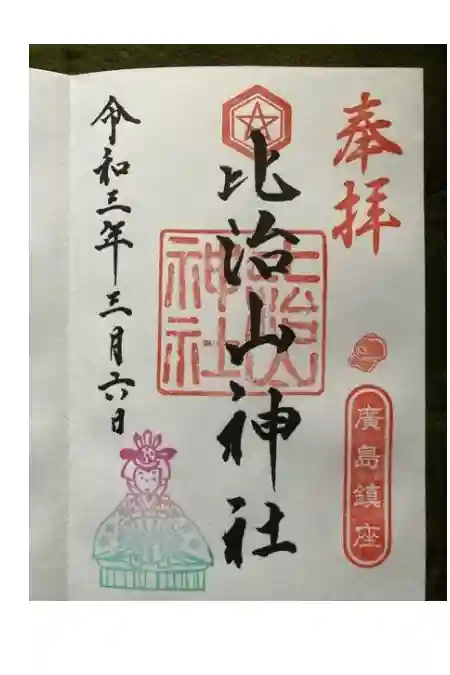 奉拝
廣島鎮座
比治山神社
比治山
神社
令和三年三月六日